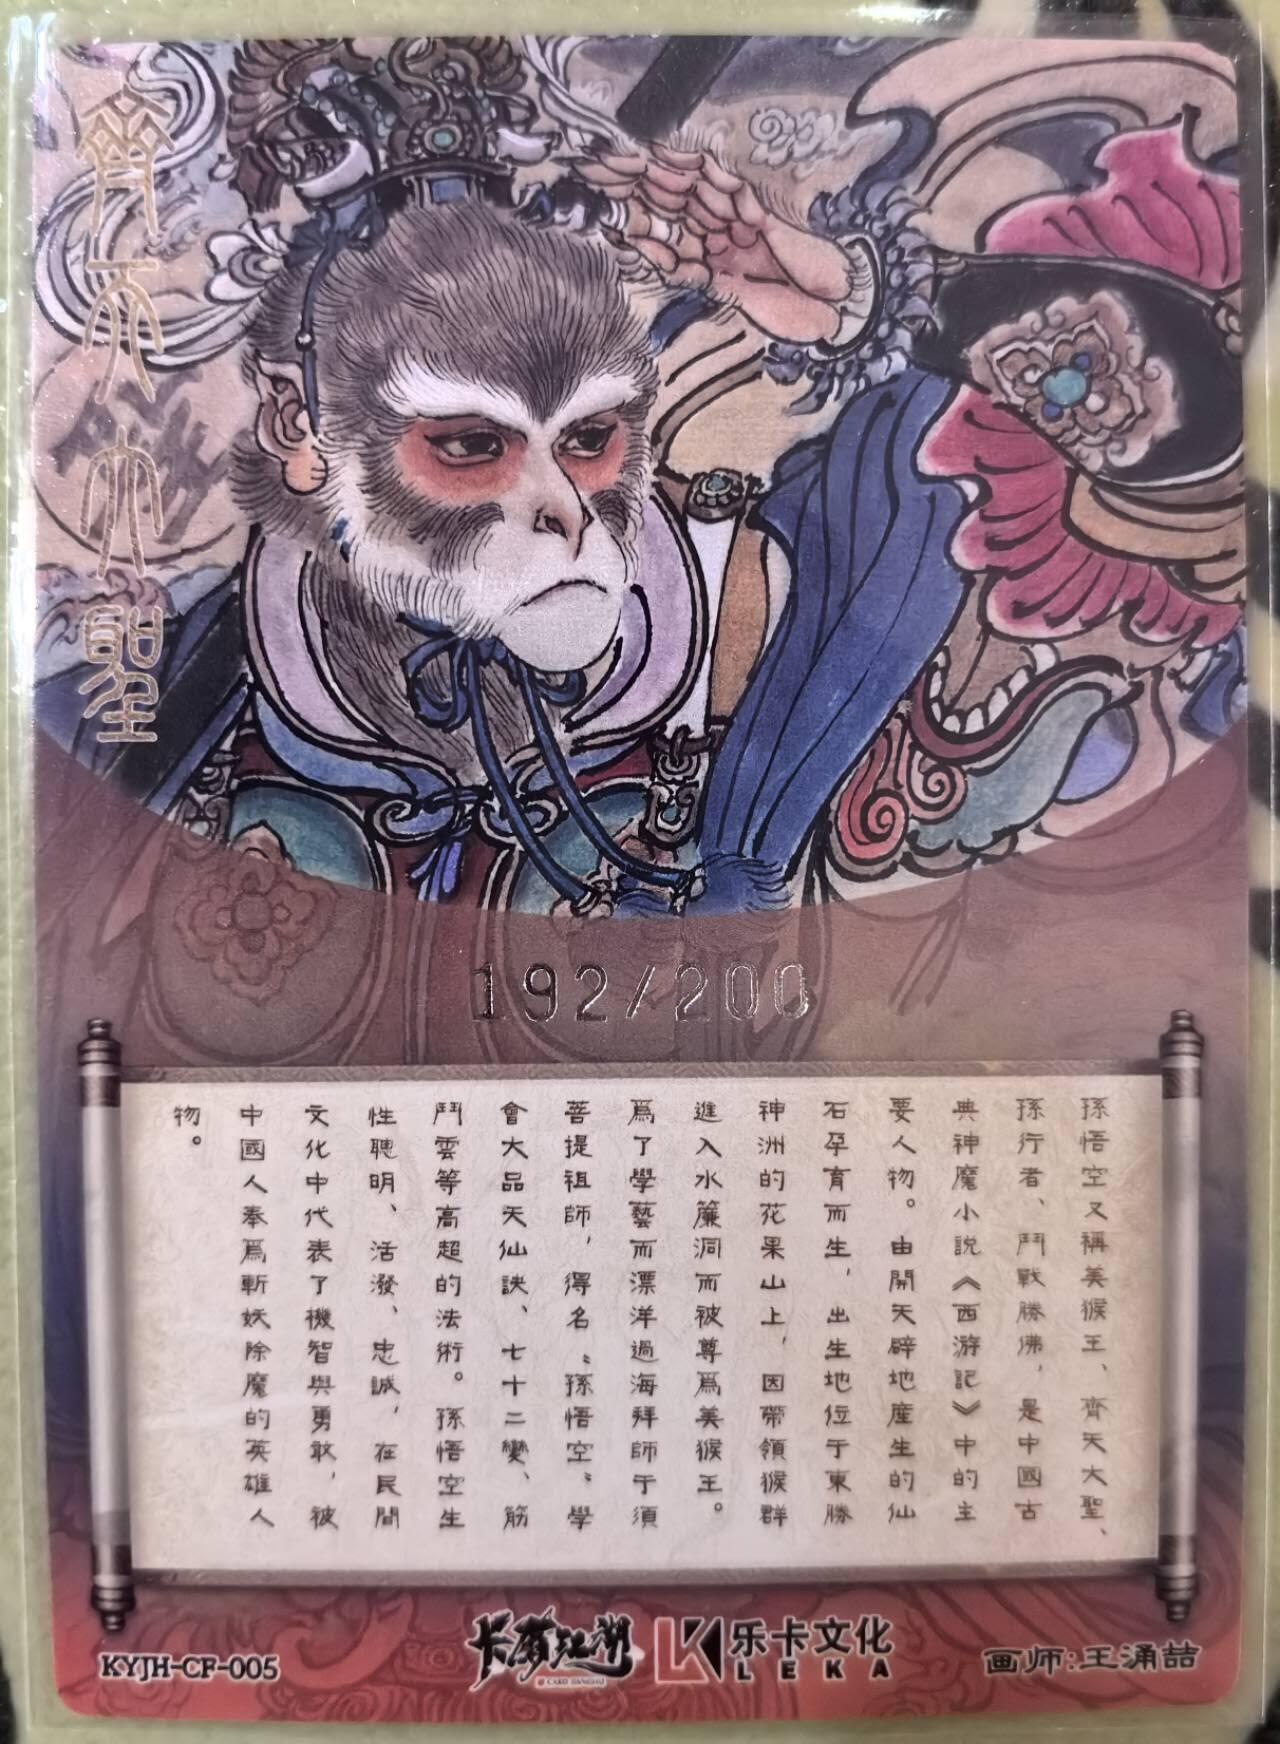 齊天大聖
192/200
孫悟空又稱美猴王、齊天大聖、
孫行者、鬥戰勝佛，是中國古
典神魔小說《西游記》中的主
要人物。由開天辟地産生的仙
石孕育而生，出生地位于東勝
神洲的花果山上，因帶領猴群
進入水簾洞而被尊爲美猴王。
爲了學藝而漂洋過海拜師于須
菩提祖師，得名“孫悟空”學
會大品天仙訣、七十二變、筋
鬥雲等高超的法術。孫悟空生
性聰明、活潑、忠誠，在民間
文化中代表了機智與勇敢，被
中國人奉爲斬妖除魔的英雄人
物。
KYJH-CF-005
卡游江湖
CARD JIANGHU
乐卡文化
LEKA
画师:王涌喆